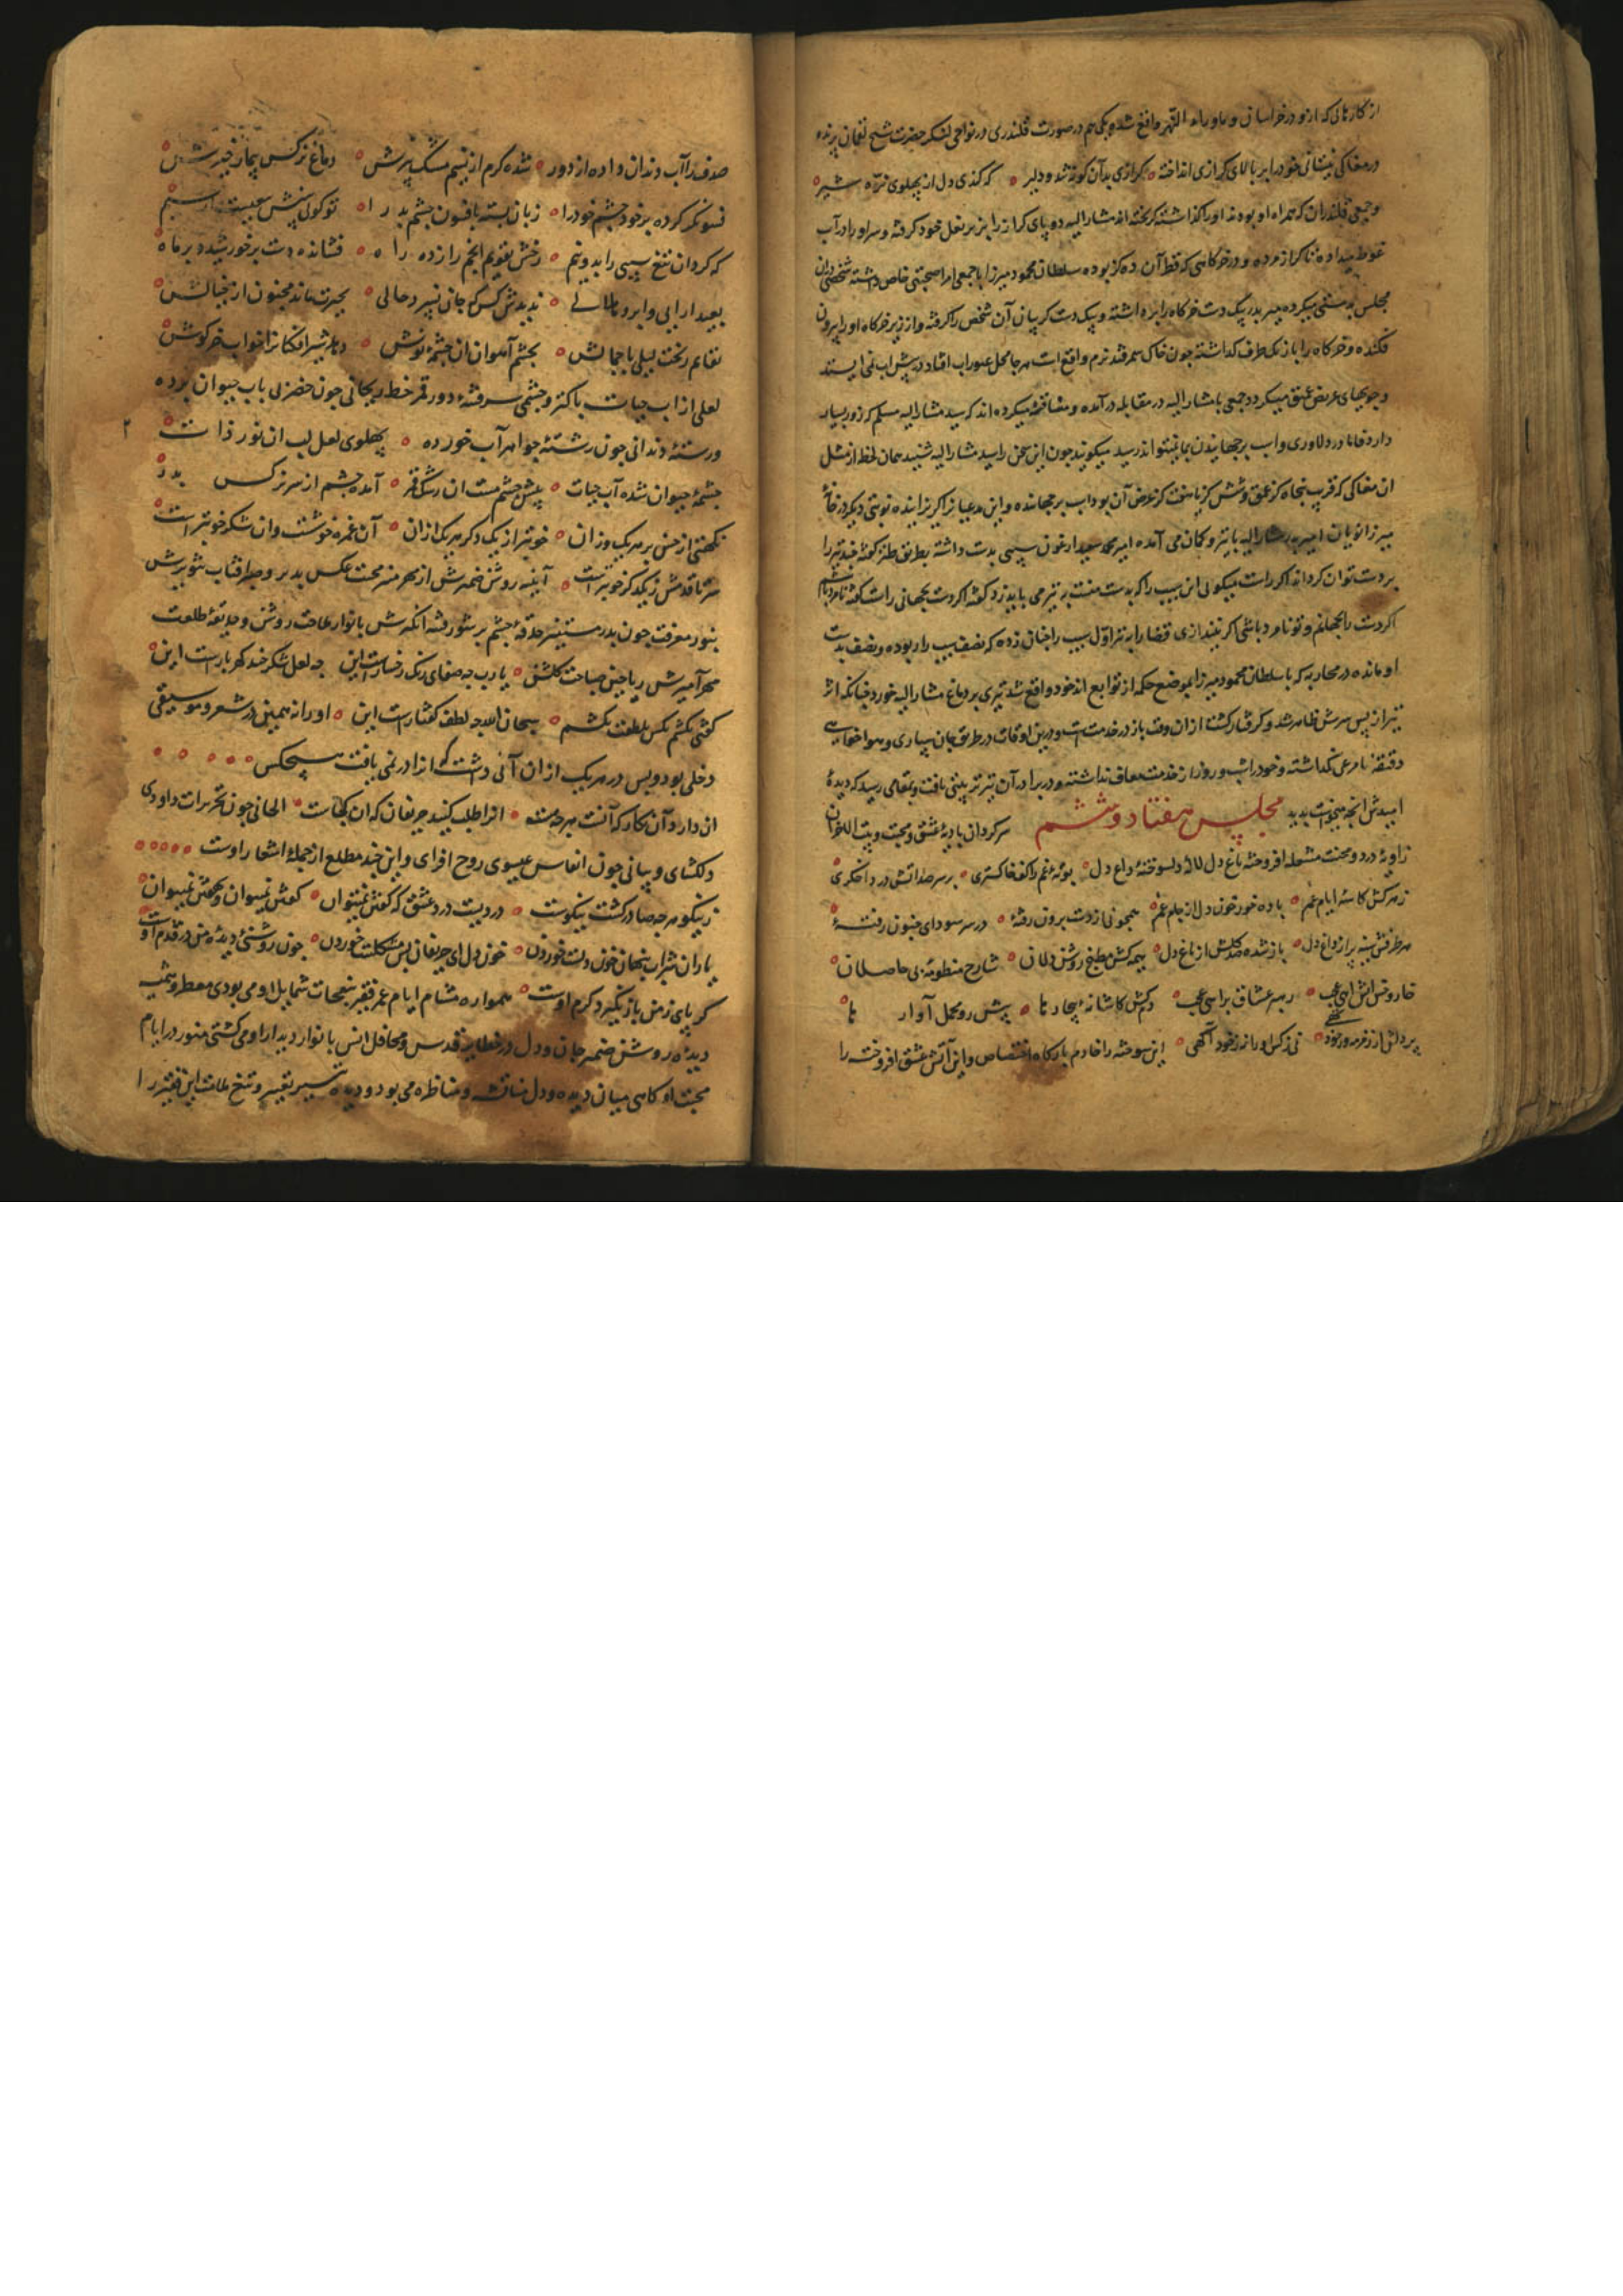 از کارهائی که ازو در خراسان و ماوراء النهر واقع شده یکی هم در صورت قلندری در نواحی لنکر حضرت شیخ لقمان پرنده
در مغاکی نیشانی خود را بر بالای کرازی انداخته کرازی بدآن کونه شد و دلیر که کندی دل از پهلوی نره شیر
و جمعی قلندران که همراه او بودند او را کذاشته کریخته اند مشار الیه دو پای کراز را بزیر بغل خود کرفته و سر او را در آب
غوطه میداده تا کراز مرده و در خرکاهی که قطر آن ده کز بوده سلطان محمود میرزا با جمعی امرا صحبتی خاص داشته شخصی دران
مجلس بدمستی میکرده میر بدر بیک دست خرکاه را برداشته و بیک دست کریبان آن شخص را کرفته و از زیر خرکاه او را بیرون
فکنده و خرکاه را باز بیک طرف کذاشته چون خاک سمرقند نرم واقع است هر جا محل عبور آب افتاد درپیش آب نمی ایستد
و جویهای عریض عمیق میکردد جمعی با مشار الیه در مقابله درآمده و مفاخره میکرده اند که سید مشار الیه مسلم که زور بسیار
دارد فاما در دلاوری و اسب برجهانیدن بما نمیتواند رسید میکویند چون این سخن را سید مشار الیه شنید همان لحظ از مثل
ان مغاکی که قریب پنجاه کز عمق و شش کز یا هفت کز عرض آن بود اسب برجهانده و این مدعیانرا کریزانیده نوبتی دیکر در خانهٔ
میرزا نویان امیر بدر مشار الیه با تیر و کمان می آمده امیر محمد سعید ارغون سیبی بدست داشته بطریق طنز کفته خید تیر را
بر دست توان کرداند اکر راست میکوئی این سیب را که بدست منست به تیر می باید زد کفته اکر دست نجهانی راست کفته نامرد باشم
اکر دست را بجهانم و تو نامرد باشی اکر نیندازی قضا را به تیر اول سیب را چنان زده که نصف سیب را ربوده و نصف بدست
او مانده در محاربه که با سلطان محمود میرزا بموضع حکمه از توابع اندخود واقع شد تیری بر دماغ مشار الیه خورد چنانکه اثر
تیر از پس سرش ظاهر شد و کرفتار کشت از ان وقت باز در خدمت است و درین اوقات در طریق جان سپاری و هواخواهی
دقیقه نامرعی نکذاشته و خود را شب و روز از خدمت معاف نداشته و در برادر آن نیز تربیتی یافت و بمقامی رسید که دیدهٔ
امیدش آنچه میخواست بدید مجلس هفتاد و ششم سرکردان بادیهٔ عشق و محبت و بیت الاحزان
زاویهٔ درد و محنت مشعله افروخته باغ دل لالهٔ دلسوختهٔ داغ دل بوتهٔ غم را کف خاکستری بر سر صد آتش درد اخکری
زهرکش کاسهٔ ایام غم باده خور خون دل از جام غم همچو نی از دست برون رفتهٔ در سر سودای جنون رفتهٔ
هر طرفش سینه پر از داغ دل باز شده صد کلش از باغ دل هیمه کش مطبخ روشن دلان شارح منظومهٔ بی حاصلان
خار و خس آتش آهی عجب رهبر عشاق براهی عجب دمکش کاشانهٔ بیچارها پیش رو محمل آوارها
پردلش از زمزمه درد بود نی ز کس او را نه ز خود آکهی این سوخته را خادم بارکاه اختصاص و این آتش عشق افروخته را
صدف را آب دندان داده از دور شده کرم از نسیم مشک بیزش دماغ نرکس بیمار خیزش
فسونکر کرده بر خود چشم خود را زبان بسته بافسون چشم بد را تو کوئی بینیش تیغیست از سیم
که کرد آن تیغ سیبی را بدو نیم رخش تقویم انجم را زده راه فشانده دست بر خورشید و بر ماه
بعید آرایی و ابرو هلالی ندیدش کس که جان نسپرد حالی بحیرت ماند مجنون از خیالش
بقایم ریخت لیلی با جمالش بچشم آهوان آن چشمهٔ نوش دهد شیرافکنانرا خواب خرکوش
لعلی از آب حیات پاکتر و چشمی سرفتنهٔ دور قمر خط ریحانی چون خضر لی بآب حیوان برده
و رستهٔ دندانی چون رشتهٔ جواهر آب خورده پهلوی لعل لب آن نور ذات
چشمهٔ حیوان شده آب حیات پیش چشم مست ان رشک قمر آمده چشم از سر نرکس بدر
نکهتی از حسن بر هر یک وزان خوبتر از یک دکر هر یک ازان آن غمزه خوشست وان شکر خوبتر است
سر تا قدمش ز یکدکر خوبتر است آیینه روشن ضمیرش از مهر منیر محبت عکس پذیر و مهر آفتاب تنویرش
بنور معرفت چون بدر مستنیر حدقهٔ چشم پر شور فتنه انکیزش بانوار ملاحت روشن و حدیقهٔ طلعت
مهرآمیزش ریاحین صباحت کلشن یا رب چه صفای رنک رخسارست این چه لعل شکرخند کهربارست این
کفتی بکشم بکس بلطفت بکشم سبحان الله چه لطف کفتارست این او را نه همین در شعر و موسیقی
دخلی بود و بس در هر یک از ان آنی داشت که انرا در نمی یافت هیچکس
آن دارد آن نکار که آنست هرچه هست آنرا طلب کنید حریفان که ان کجاست الحانی چون تحریرات داودی
دلکشای و بیانی چون انفاس عیسوی روح افزای و این چند مطلع از جملهٔ اشعار اوست
ز نیکو هر چه صادر کشت نیکوست دردیست درد عشق که کفتن نمیتوان کفتن نمیتوان و نهفتن نمیتوان
یاران شراب پنهان خون دلست خوردن خون دل ای حریفان بس مشکلست خوردن چون روشنئ دیده من در قدم اوست
کر پای ز من باز نکیرد کرم اوست همواره مشام ایام عمر فقیر بنفحات شمایل او می بودی معطر و همیشه
دیده روشن ضمیر جان و دل در خطایر قدس و محافل انس بانوار دیدار او می کشتی منور در ایام
محبت او کاهی میان دیده و دل مناقشه و مناظره می بود و دیده